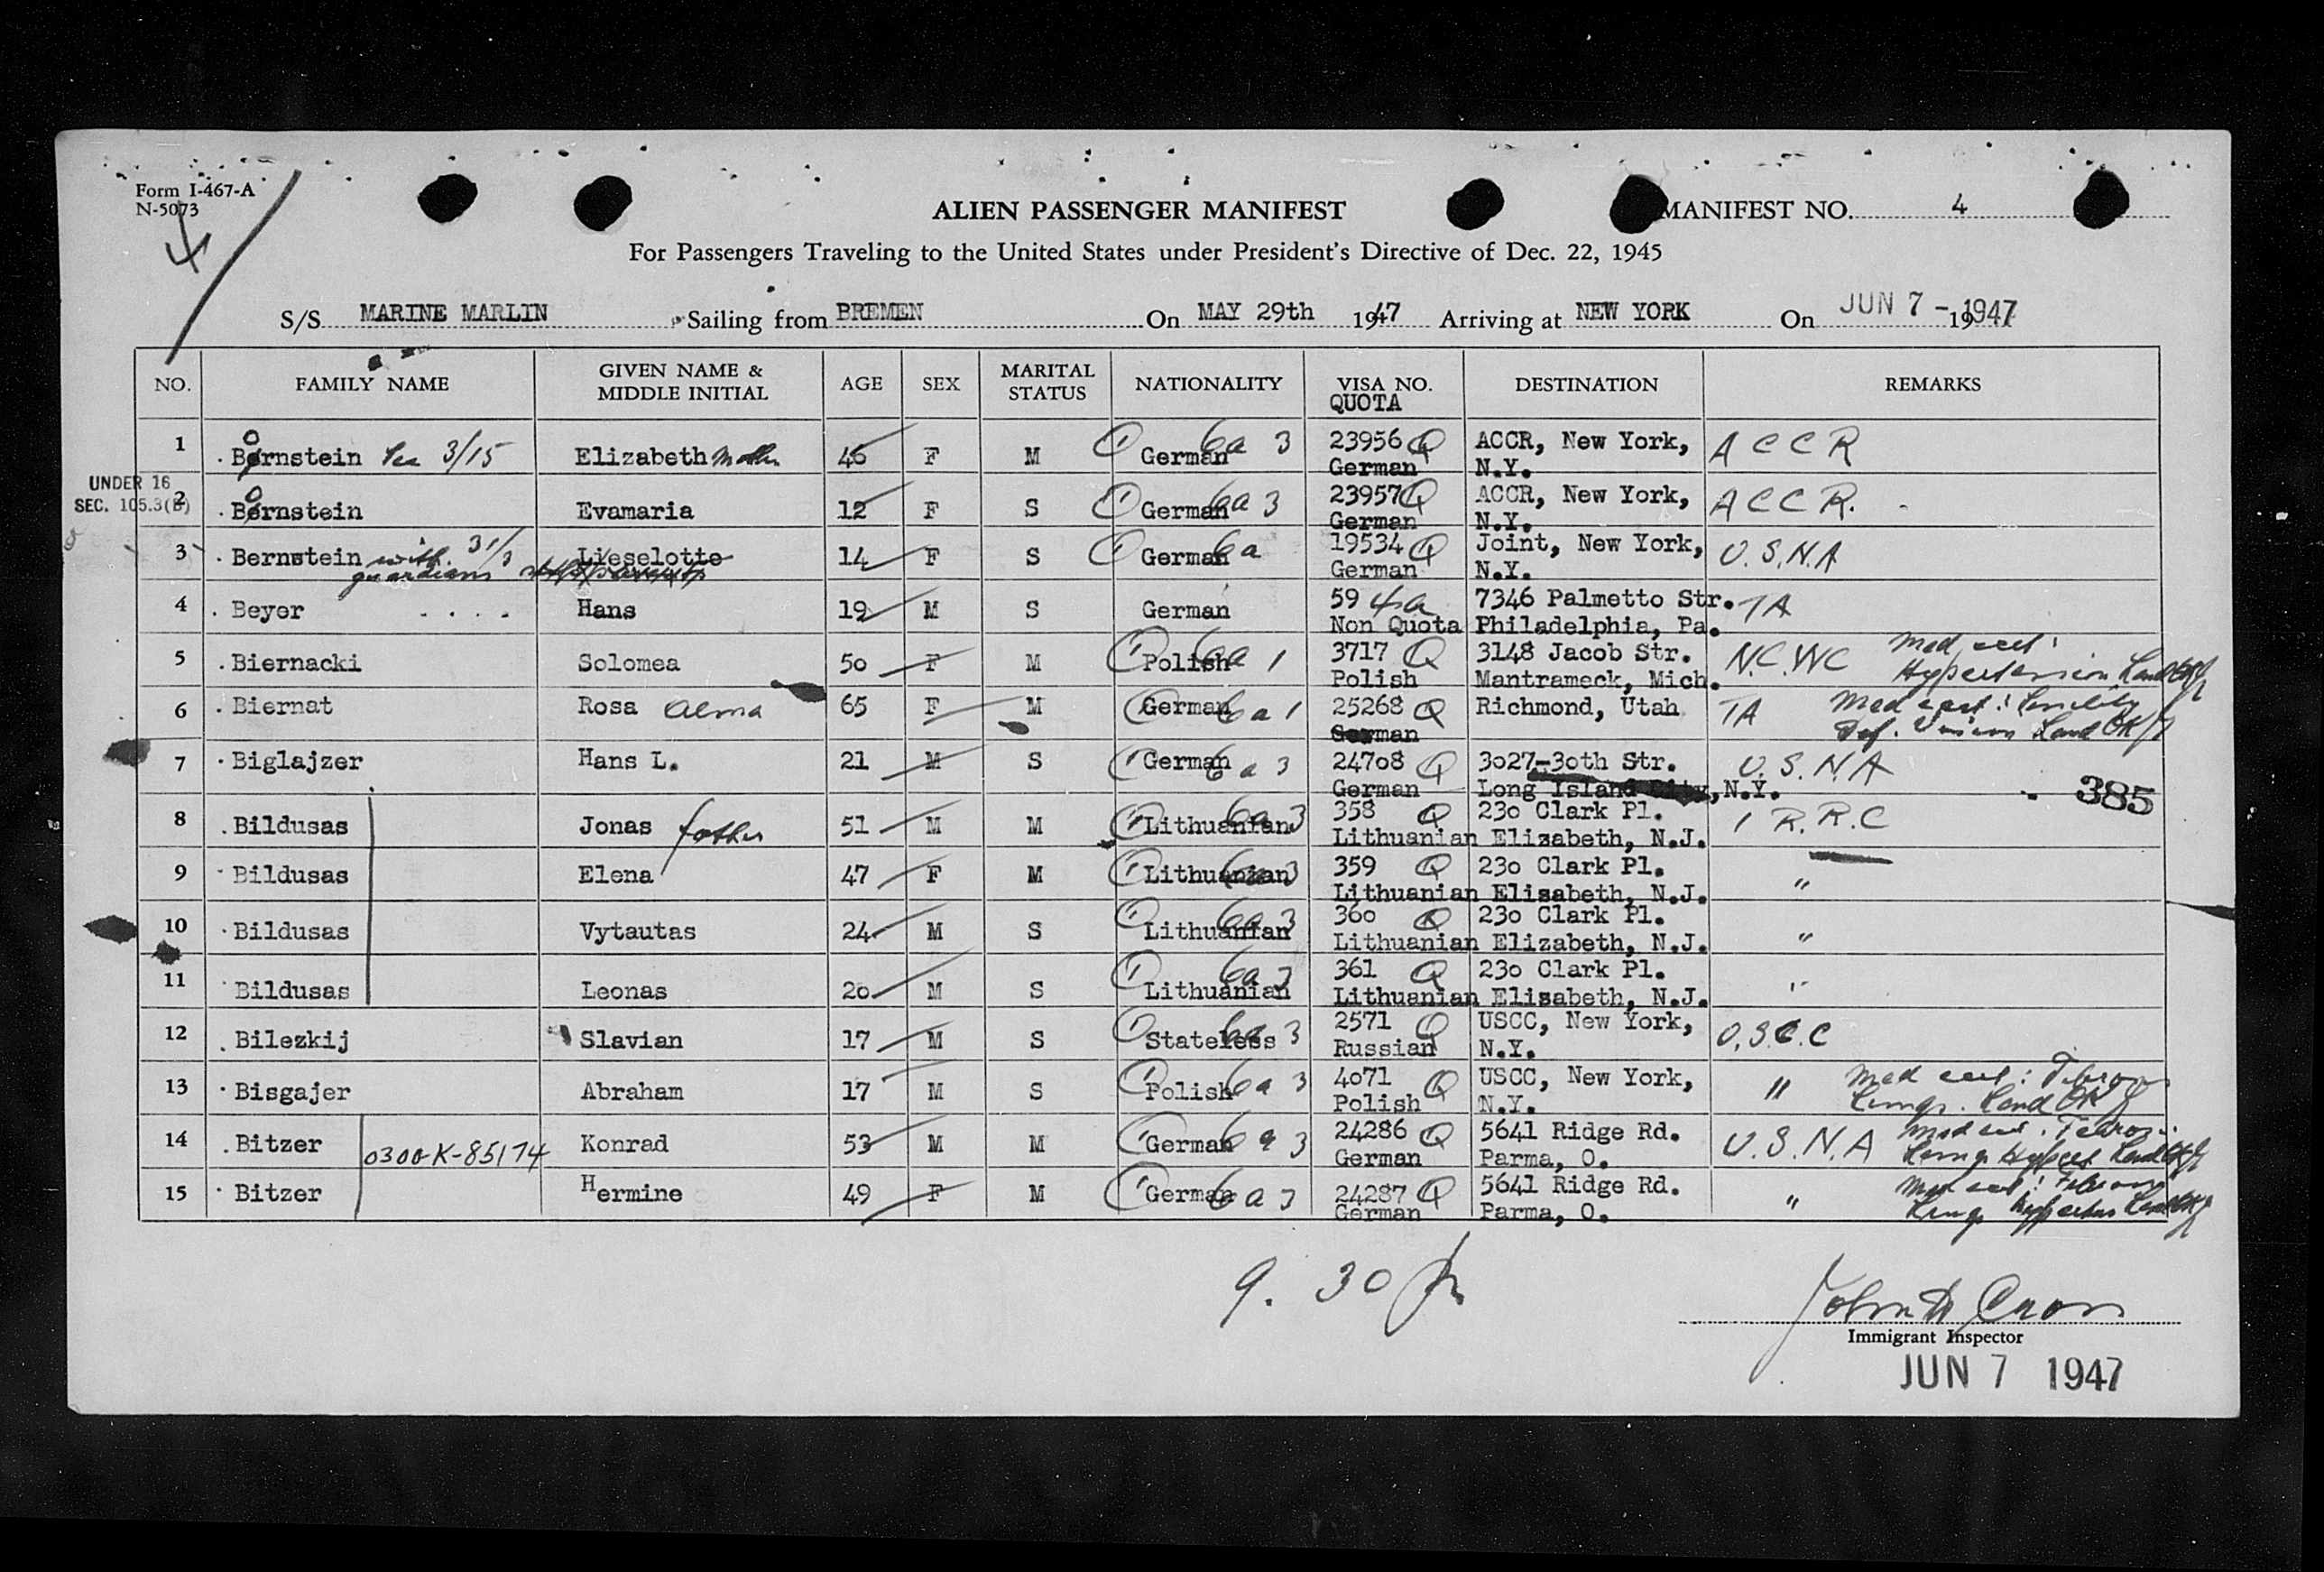 Form I-467-A
N-5073
4
ALIEN PASSENGER MANIFEST
MANIFEST NO. 4
For Passengers Traveling to the United States under President's Directive of Dec. 22, 1945
S/S MARINE MARLIN Sailing from BREMEN On MAY 29th 1947 Arriving at NEW YORK On JUN 7 - 1947
NO. FAMILY NAME GIVEN NAME & MIDDLE INITIAL AGE SEX MARITAL STATUS NATIONALITY VISA NO. QUOTA DESTINATION REMARKS
1 Bornstein 3/15 Elizabeth Mother 46 F M German 6a 3 23956 Q ACCR, New York, ACCR
German N.Y.
UNDER 16
SEC. 105.3(B)
2 Bornstein Evamaria 12 F S German 6a 3 23957 Q ACCR, New York, ACCR.
German N.Y.
3 Bernstein with 31/3 Lieselotte 14 F S German 6a 19534 Q Joint, New York, U.S.N.A
guardians German N.Y.
4 Beyer Hans 19 M S German 59 4a 7346 Palmetto Str. TA
Non Quota Philadelphia, Pa.
5 Biernacki Solomea 50 F M Polish 6a 1 3717 Q 3148 Jacob Str. N.C.WC Med cert:
Polish Mantrameck, Mich. Hypertension Land OK
6 Biernat Rosa Alma 65 F M German 6a 1 25268 Q Richmond, Utah TA Med cert: Senility
German Def. Vision Land OK
7 Biglajzer Hans L. 21 M S German 6a 3 24708 Q 3027-30th Str. U.S.N.A
German Long Island City, N.Y. 385
8 Bildusas Jonas father 51 M M Lithuanian 6a 3 358 Q 230 Clark Pl. I R.R.C
Lithuanian Elizabeth, N.J.
9 Bildusas Elena 47 F M Lithuanian 6a 3 359 Q 230 Clark Pl. "
Lithuanian Elisabeth, N.J.
10 Bildusas Vytautas 24 M S Lithuanian 6a 3 360 Q 230 Clark Pl. "
Lithuanian Elizabeth, N.J.
11 Bildusas Leonas 20 M S Lithuanian 6a 3 361 Q 230 Clark Pl. "
Lithuanian Elisabeth, N.J.
12 Bilezkij Slavian 17 M S Stateless 6a 3 2571 Q USCC, New York, U.S.C.C
Russian N.Y.
13 Bisgajer Abraham 17 M S Polish 6a 3 4071 Q USCC, New York, " Med cert:
Polish N.Y. Lungs. Land OK
14 Bitzer 0300-K-85174 Konrad 53 M M German 6a 3 24286 Q 5641 Ridge Rd. U.S.N.A Med cert:
German Parma, O. Lung Land OK
15 Bitzer Hermine 49 F M German 6a 3 24287 Q 5641 Ridge Rd. " Med cert:
German Parma, O. Lung Land OK
9.30
Immigrant Inspector
JUN 7 1947